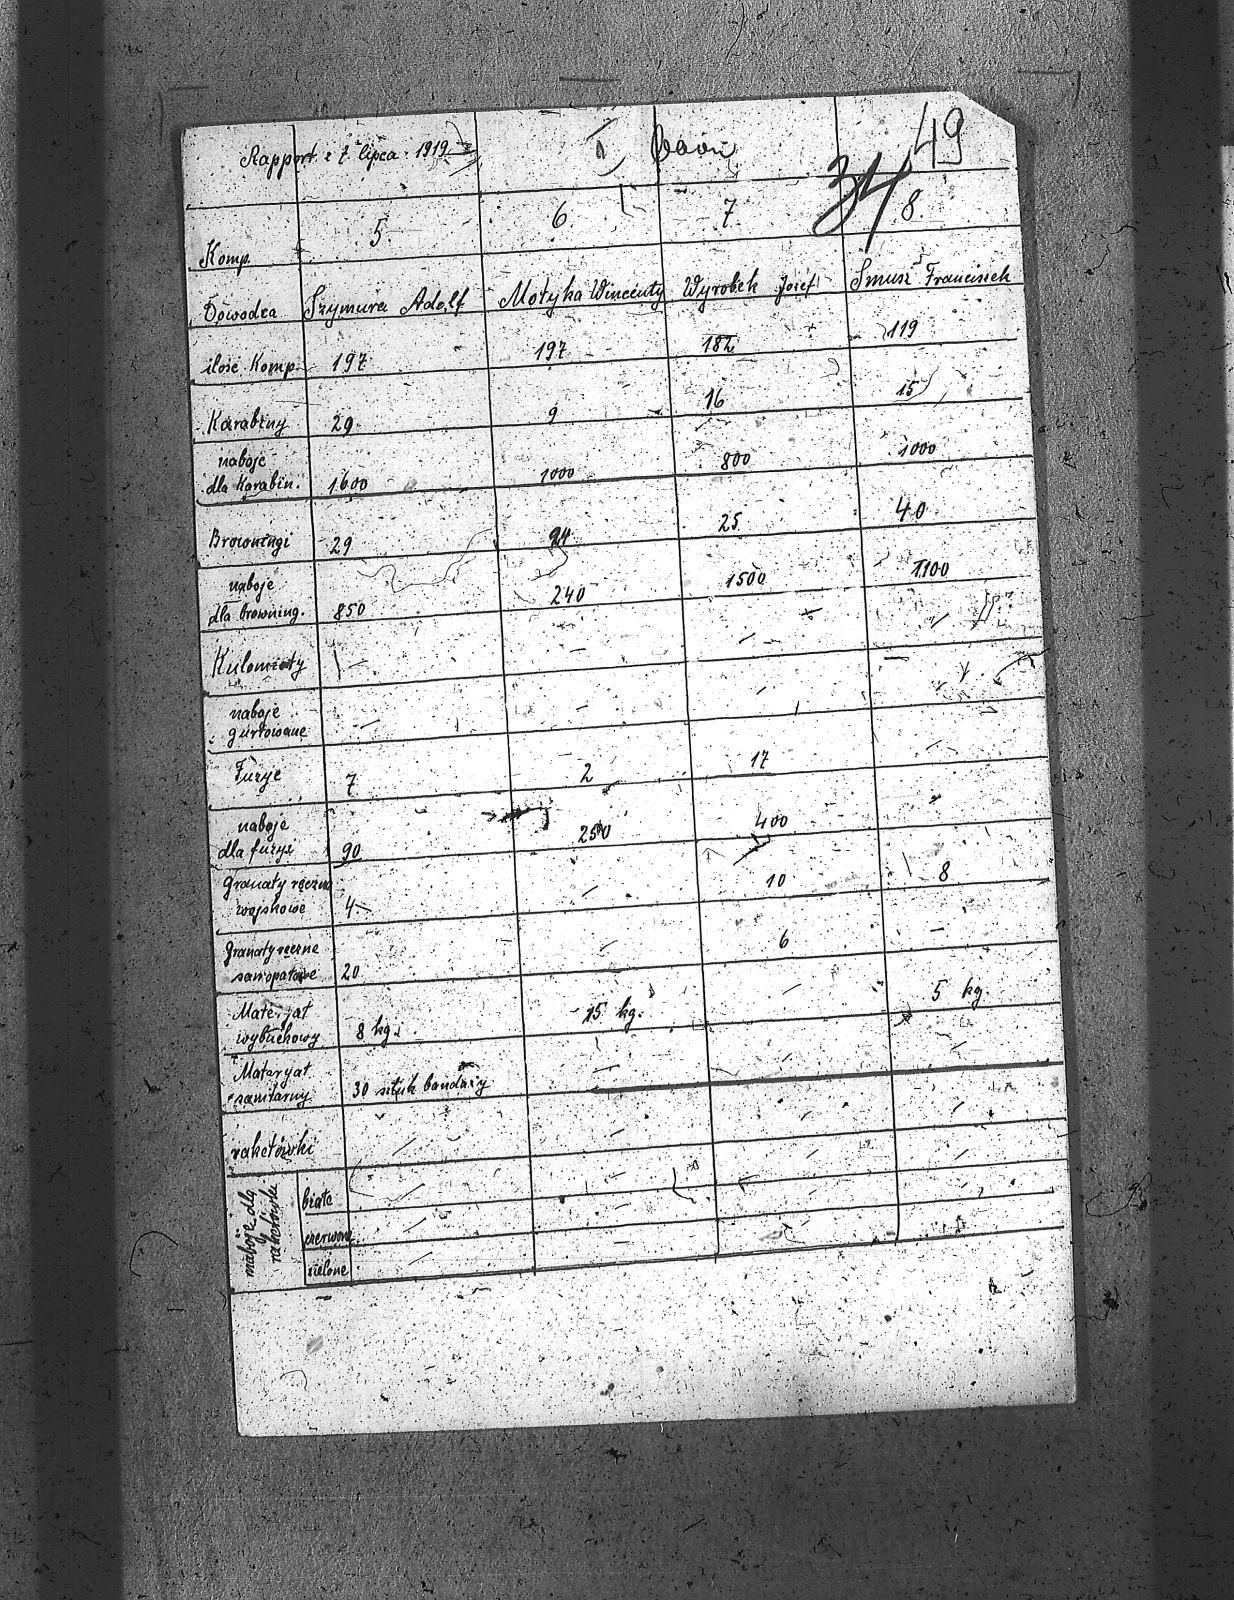 49
Rapport z 7 lipca 1919
34
Komp. 5. 6. 7. 8.
Dowodca Szymura Adolf Motyka Wincenty Wyrobek Josef Smusz Francisiek
ilosć Komp. 197 197 182 119
Karabiny 29. 9 16 15
naboje
dla Karabin. 1600 1000 800 1000
Browningi 29 24 25 40
naboje
dla browning. 850 240 1500 1100
Kulomioty - - - -
naboje
gurtowane - - - -
Fuzje 7 2 17 -
naboje
dla fuzyi 90 250 400 -
Granaty ręczne
wojskowe 4 - 10 8
Granaty ręczne
samopałowe 20 - 6 -
Materjał
wybuchowy 8 kg. 15 kg. - 5 kg
Materyał
sanitarny 30 sztuk bandaży - - -
raketówki - - - -
naboje dla
raketówki
białe - - - -
czerwone - - - -
zielone - - - -